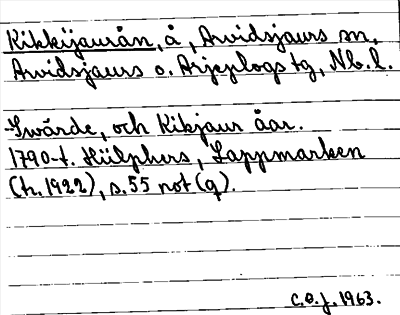 Kikkijaurån, å, Arvidsjaurs sn,
Arvidsjaurs o. Arjeplogs tg, Nb. l.
-Swärde, och Kikjaur åar.
1790-t. Hülphers, Lappmarken
(tr. 1922), s. 55 not (q).
C.O.J. 1963.